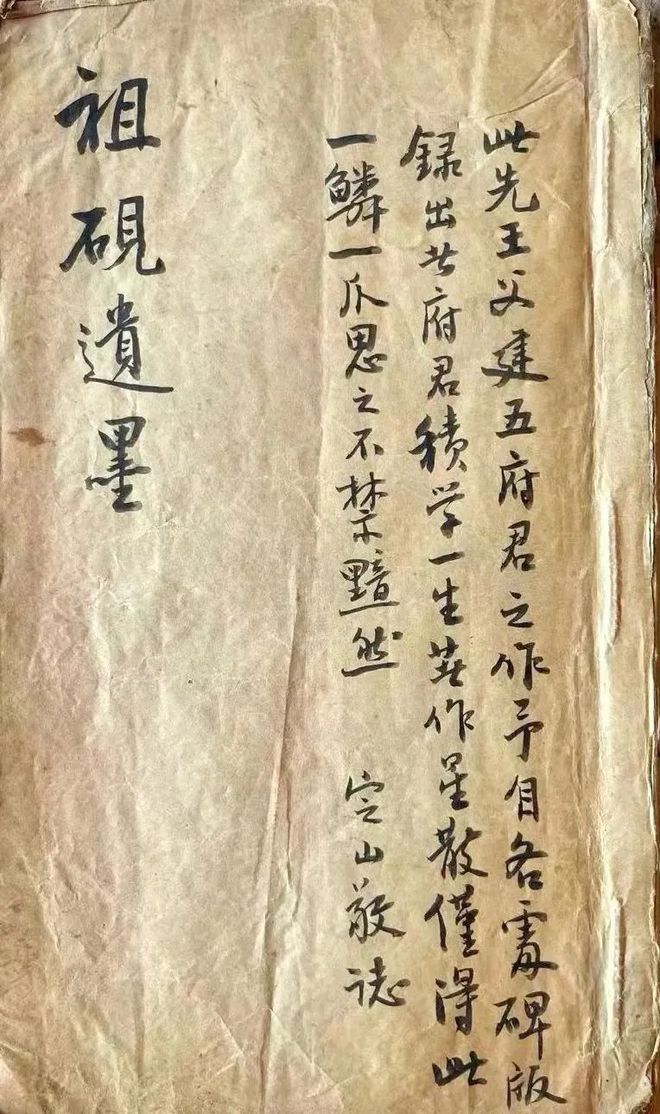 此先王父建五府君之作予自各處碑版
錄出者府君積學一生著作星散僅得此
一鱗一爪思之不禁黯然 定山敬誌
祖硯遺墨